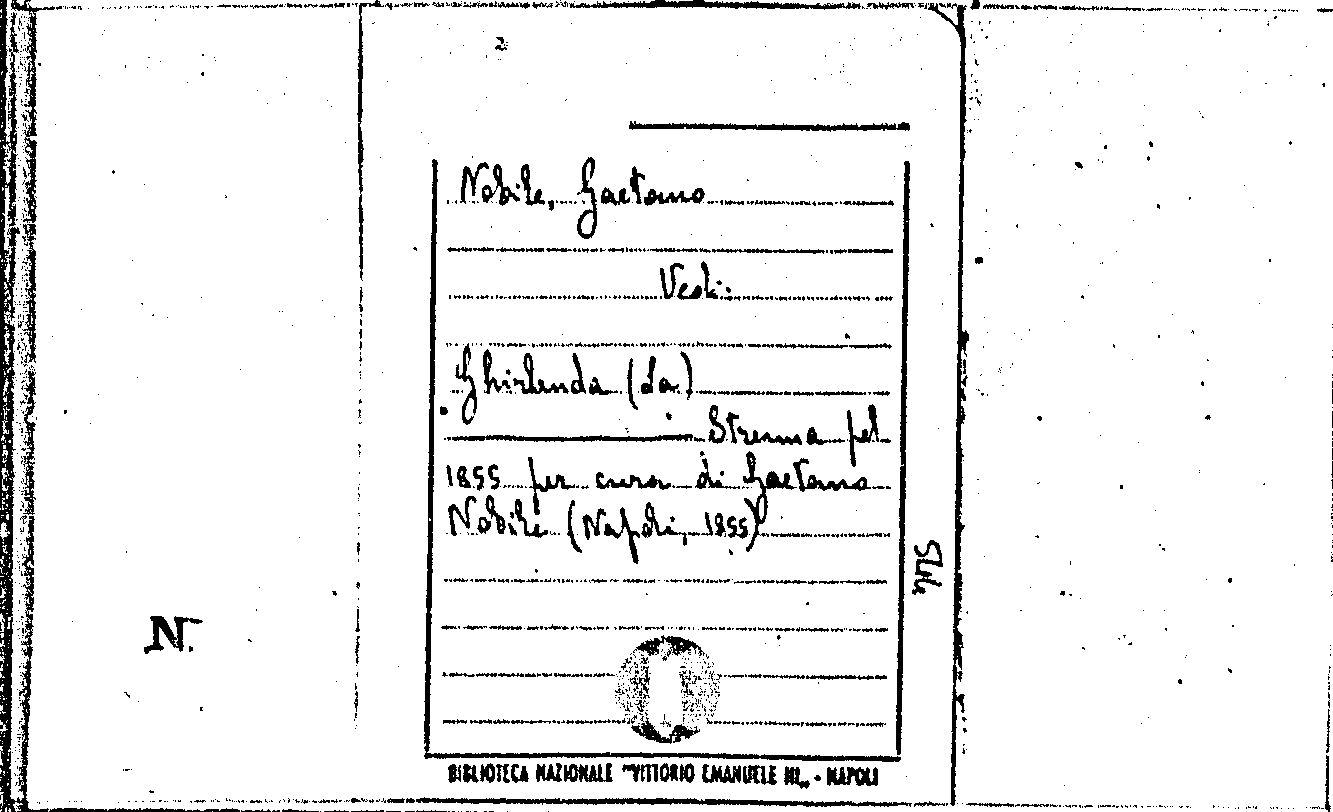 2
Nobile, Gaetano
Vedi:
Ghirlanda (La)
Strenna pel
1855 per cura di Gaetano
Nobile (Napoli, 1855)
N.
BIBLIOTECA NAZIONALE "VITTORIO EMANUELE III„ - NAPOLI